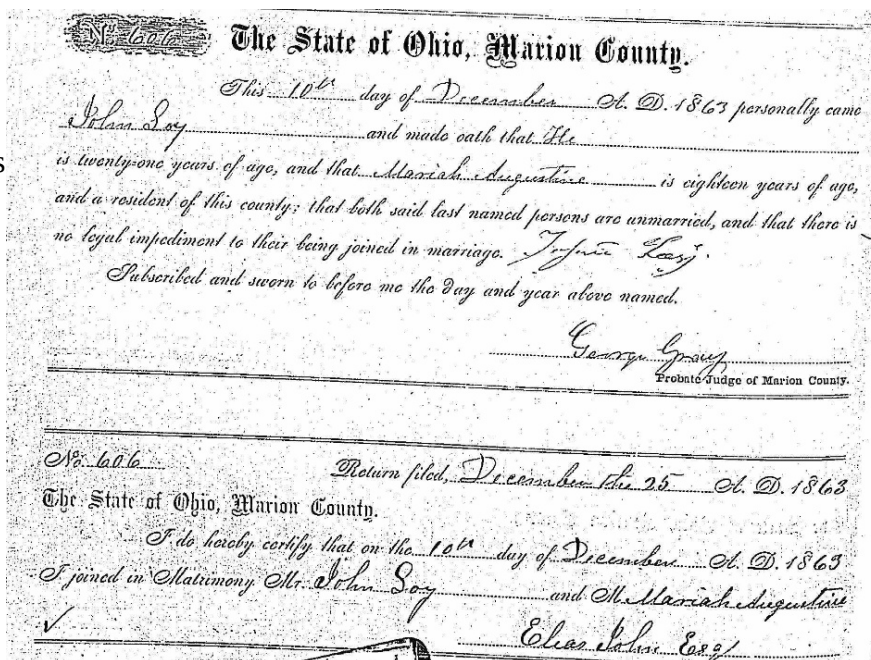 No 606 The State of Ohio, Marion County.
This 10th day of December A. D. 1863 personally came
John Loy and made oath that He
is twenty-one years of age, and that Mariah Augustine is eighteen years of age,
and a resident of this county; that both said last named persons are unmarried, and that there is
no legal impediment to their being joined in marriage. John Loy.
Subscribed and sworn to before me the day and year above named.
George Gray
Probate Judge of Marion County.
No. 606 Return filed, December the 25 A. D. 1863
The State of Ohio, Marion County.
I do hereby certify that on the 10th day of December A. D. 1863
I joined in Matrimony Mr. John Loy and M Mariah Augustine
Elias John Esq